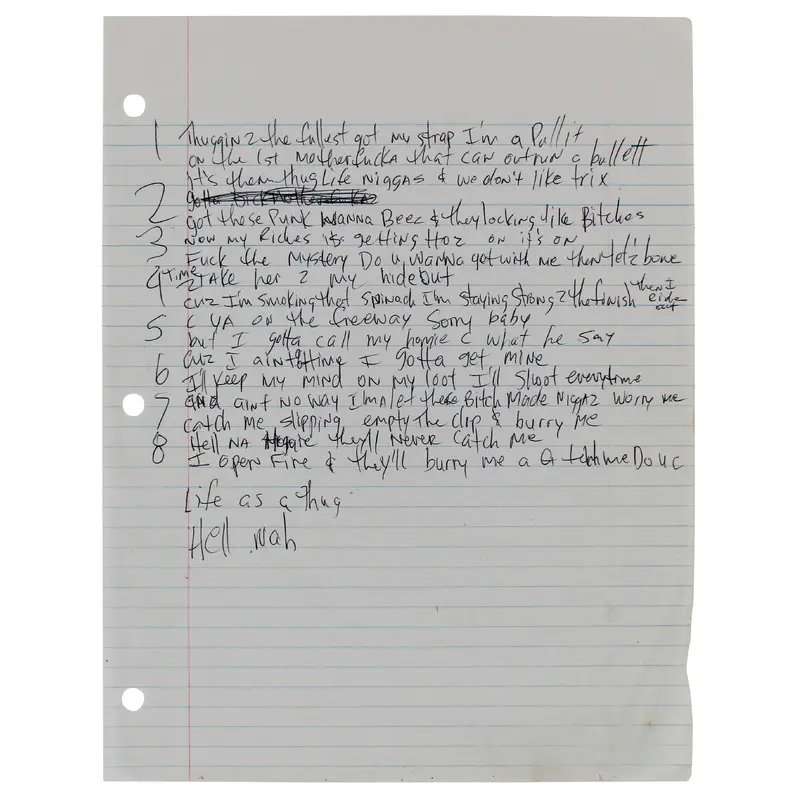 1 Thuggin 2 the fullest got my strap I'm a Pull it
on the 1st MotherfuckA that can outrun a bullett
it's them thug Life Niggas & we don't like trix
2
got these Punk WannA Beez & they locking like Bitches
3 Now my Riches is getting Hoz on it's on
Fuck the Mystery Do u, wanna got with me then let'z bone
4 Time 2 TAKE her 2 my hideout
cuz I'm smoking that spinach I'm staying strong 2 the finish then I ride out
5 C YA on the freeway Sorry baby
but I gotta call my homie c what he say
cuz I ain't I gotta get mine
6 I'll keep my mind on my loot I'll shoot everytime
7 and aint NO way I'mA let these Bitch Made Niggaz worry me
catch me slipping empty the clip & burry me
8 Hell NA they'll Never Catch Me
I open Fire & they'll burry me a G Do u c
Life as a thug
Hell nah